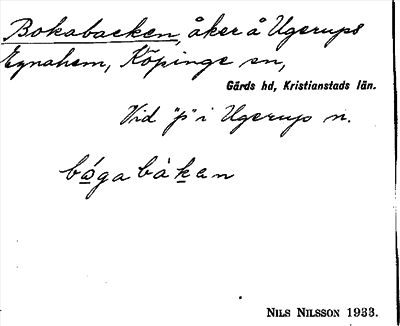 Bokabacken, åker å Ugerups
Egnahem, Köpinge sn,
Gärds hd, Kristianstads län.
Vid "p" i Ugerup n.
bógabàkan
NILS NILSSON 1933.